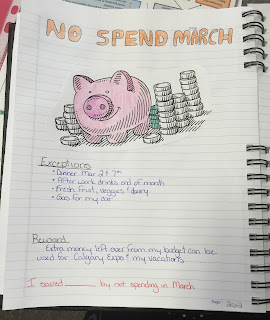 NO SPEND MARCH
Exceptions
• Dinner Mar 2 & 7th
• After work drinks end of month
• Fresh Fruit, veggies & dairy
• Gas for my car
Reward
Extra money left over from my budget can be
used for Calgary Expo & my vacations
I saved ______ by not spending in March
Page: